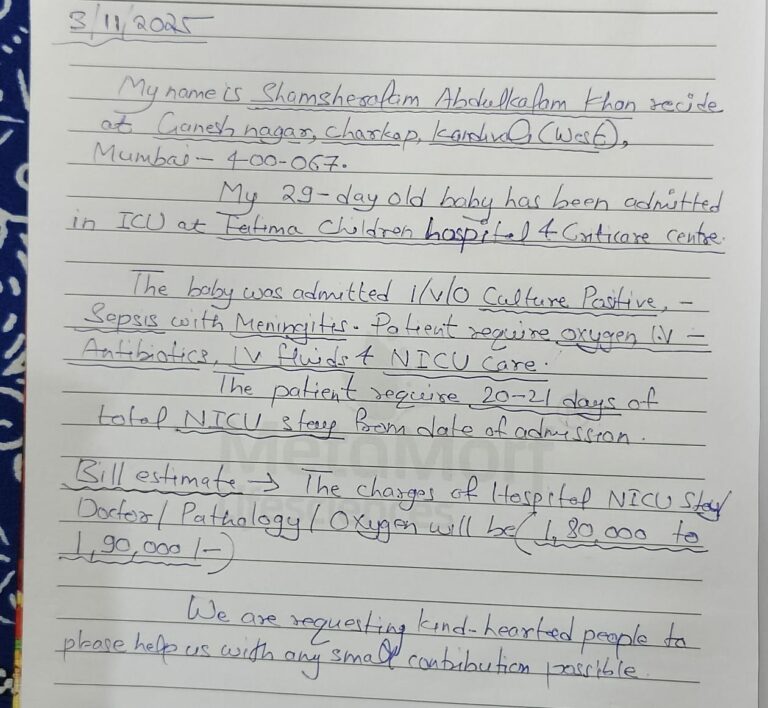 3/11/2025
My name is Shamsheralam Abdulkalam Khan recide
at Ganesh nagar, charkop, Kandivali (West),
Mumbai - 400-067.
My 29-day old baby has been admitted
in ICU at Fatima Children hospital & Criticare centre.
The baby was admitted I/V/O Culture Positive, -
Sepsis with Meningitis. Patient require oxygen I.V -
Antibiotics, IV fluids & NICU care.
The patient require 20-21 days of
total NICU stay from date of admission.
MetaMorf
Bill estimate → The charges of Hospital NICU Stay/
Lifesciences
Doctor / Pathology / Oxygen will be (1,80,000 to
1,90,000/-)
We are requesting kind-hearted people to
please help us with any small contibution possible.